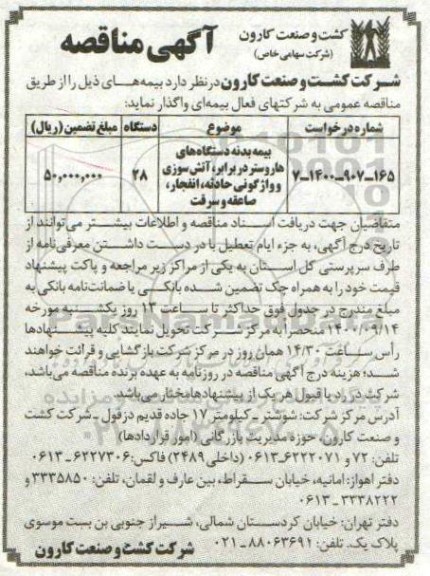 کشت و صنعت کارون
(شرکت سهامی خاص)
آگهی مناقصه
شرکت کشت و صنعت کارون در نظر دارد بیمه‌های ذیل را از طریق
مناقصه عمومی به شرکتهای فعال بیمه‌ای واگذار نماید:
شماره درخواست موضوع دستگاه مبلغ تضمین (ریال)
۱۶۵-۹۰۷-۱۴۰۰-۷ بیمه بدنه دستگاه‌های هاروستر در برابر، آتش سوزی و واژگونی حادثه، انفجار، صاعقه و سرقت ۲۸ ۵۰,۰۰۰,۰۰۰
متقاضیان جهت دریافت اسناد مناقصه و اطلاعات بیشتر می‌توانند از
تاریخ درج آگهی، به جزء ایام تعطیل با در دست داشتن معرفی‌نامه از
طرف سرپرستی کل استان به یکی از مراکز زیر مراجعه و پاکت پیشنهاد
قیمت خود را به همراه چک تضمین شده بانکی یا ضمانت‌نامه بانکی به
مبلغ مندرج در جدول فوق حداکثر تا ساعت ۱۳ روز یکشنبه مورخه
۱۴۰۰/۰۹/۱۴ منحصرا به مرکز شرکت تحویل نمایند کلیه پیشنهادها
رأس ساعت ۱۴/۳۰ همان روز در مرکز شرکت بازگشایی و قرائت خواهند
شد؛ هزینه درج آگهی مناقصه در روزنامه به عهده برنده مناقصه می‌باشد،
شرکت در رد یا قبول هر یک از پیشنهادها مختار می‌باشد.
آدرس مرکز شرکت: شوشتر - کیلومتر ۱۷ جاده قدیم دزفول - شرکت کشت
و صنعت کارون، حوزه مدیریت بازرگانی (امور قراردادها)
تلفن: ۷۲ و ۶۲۲۲۰۷۱-۰۶۱۳ (داخلی ۲۴۸۹) فاکس: ۶۲۲۷۳۰۶-۰۶۱۳
دفتر اهواز: امانیه، خیابان سقراط، بین عارف و لقمان، تلفن: ۳۳۳۵۸۵۰ و
۳۳۳۸۲۲۲-۰۶۱۳
دفتر تهران: خیابان کردستان شمالی، شیراز جنوبی بن بست موسوی
پلاک یک. تلفن: ۸۸۰۶۳۶۹۱-۰۲۱
شرکت کشت و صنعت کارون